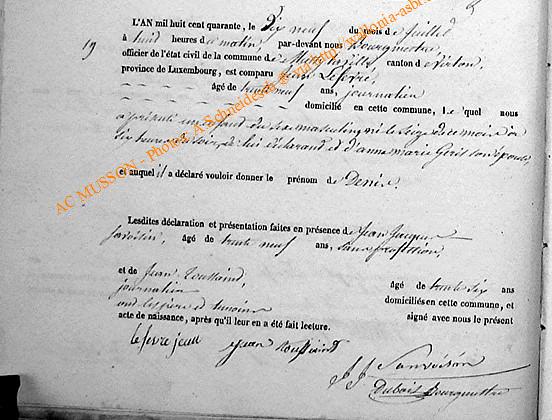 19
L'AN mil huit cent quarante, le Dix neuf du mois de juillet
à huit heures du matin, par-devant nous Bourgmestre,
officier de l'état civil de la commune de Mussy-la-Ville canton de Virton,
province de Luxembourg, est comparu Jean Lefevre,
âgé de trente neuf ans, journalier
domicilié en cette commune, Le quel nous
a présenté un enfant du sexe masculin, né le Seize de ce mois à
six heures du soir, de lui déclarant et d'anne marie Gérès son épouse,
et auquel il a déclaré vouloir donner le prénom de Denis.
Lesdites déclaration et présentation faites en présence de Jean Jacques
âgé de trente neuf ans, sans profession,
et de Jean Toussaint, âgé de trente six ans
journalier domiciliés en cette commune, et
ont les père et témoins signé avec nous le présent
acte de naissance, après qu'il leur en a été fait lecture.
lefevre jean Jean toussaint
J J
Dubois Bourgmestre
AC MUSSON - Photos A.Schneidesch @ via http://wallonia-asbl